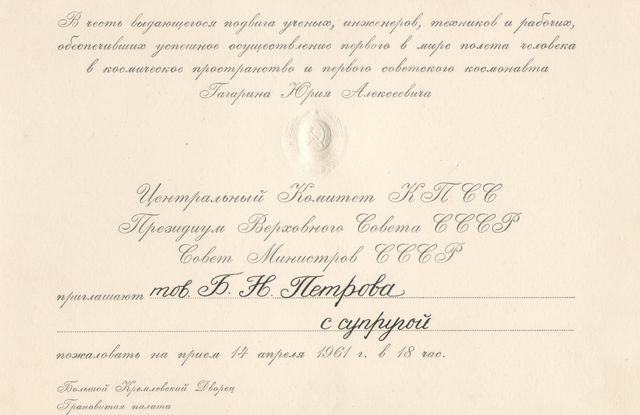 В честь выдающегося подвига ученых, инженеров, техников и рабочих,
обеспечивших успешное осуществление первого в мире полета человека
в космическое пространство и первого советского космонавта
Гагарина Юрия Алексеевича
Центральный Комитет КПСС
Президиум Верховного Совета СССР
Совет Министров СССР
приглашают тов. Б. Н. Петрова
с супругой
пожаловать на прием 14 апреля 1961 г. в 18 час.
Большой Кремлевский Дворец
Грановитая палата